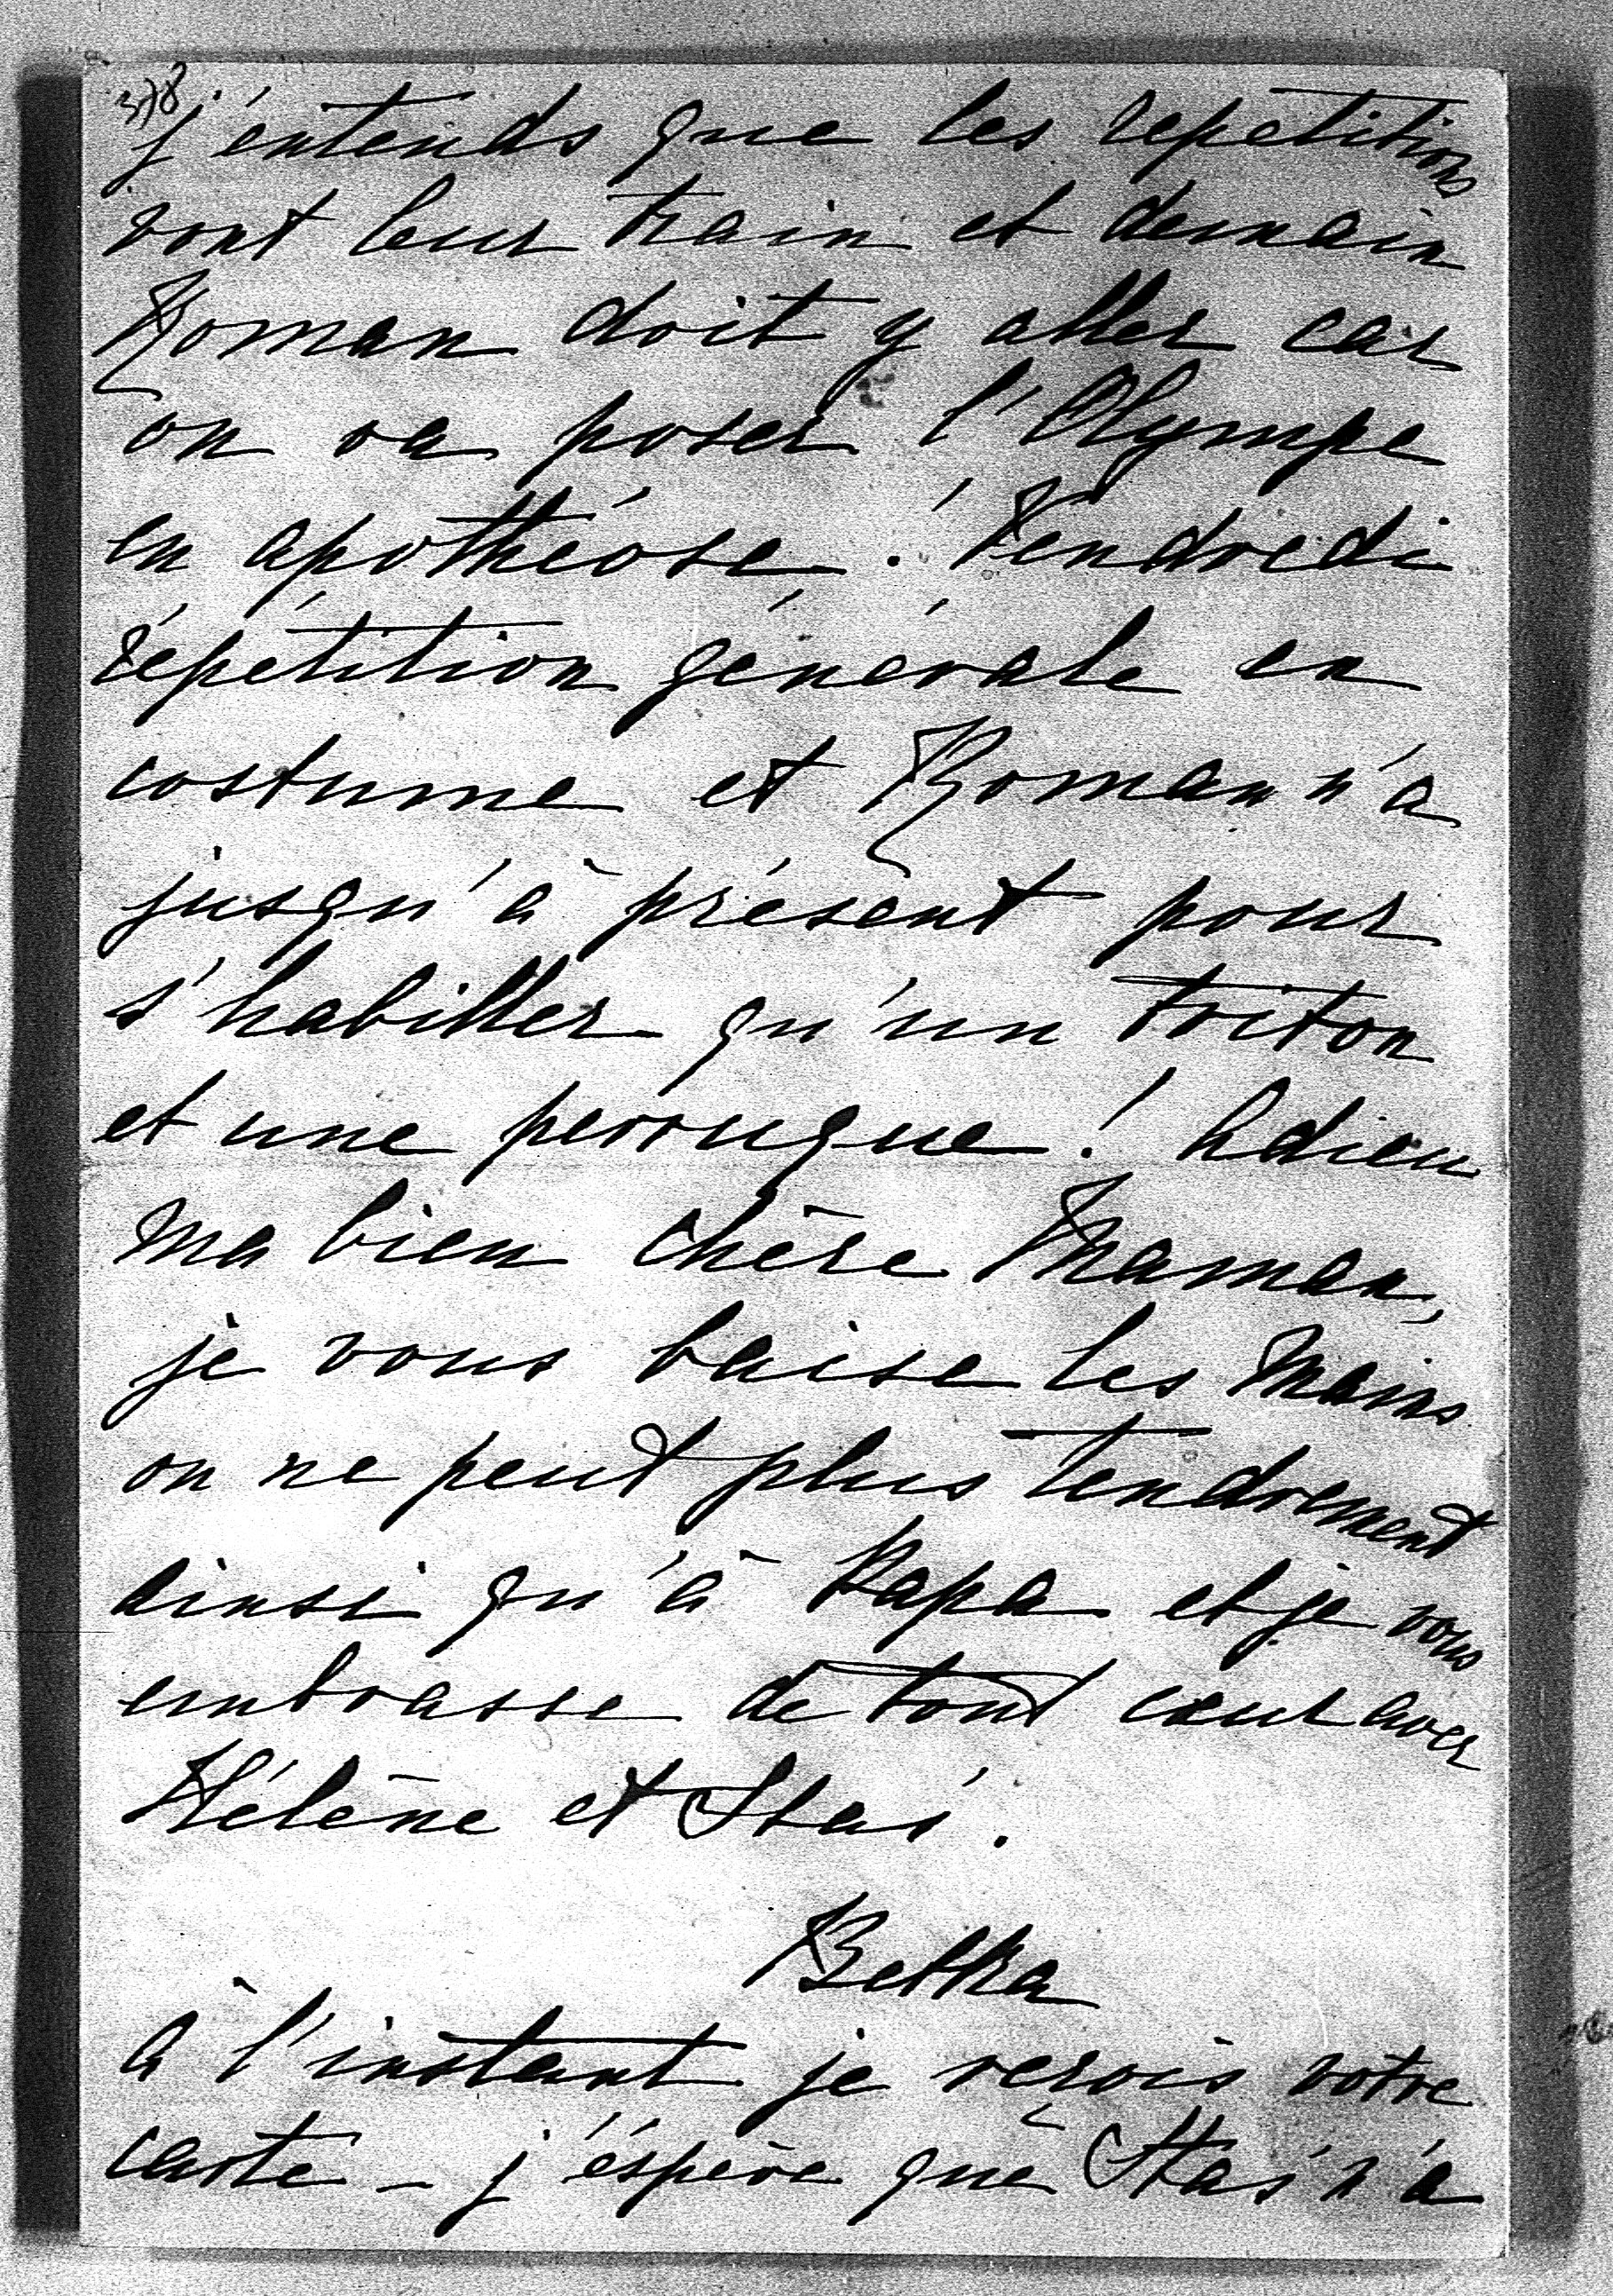 378
j'entends que les repetitions
vont leur train et demain
Roman doit y aller car
on va poser l'Olympe
en apothéose. ! Vendredi
répétition générale en
costume et Roman n'a
jusqu'à présent pour
s'habiller qu'un triton
et une perruque ! Adieu
ma bien chère Maman,
je vous baise les mains
on ne peut plus tendrement
ainsi qu'à Papa et je vous
embrasse de tout cœur avec
Hélène et Staś.
Betka
à l'instant je reçois votre
carte – j'éspère que Staś n'a